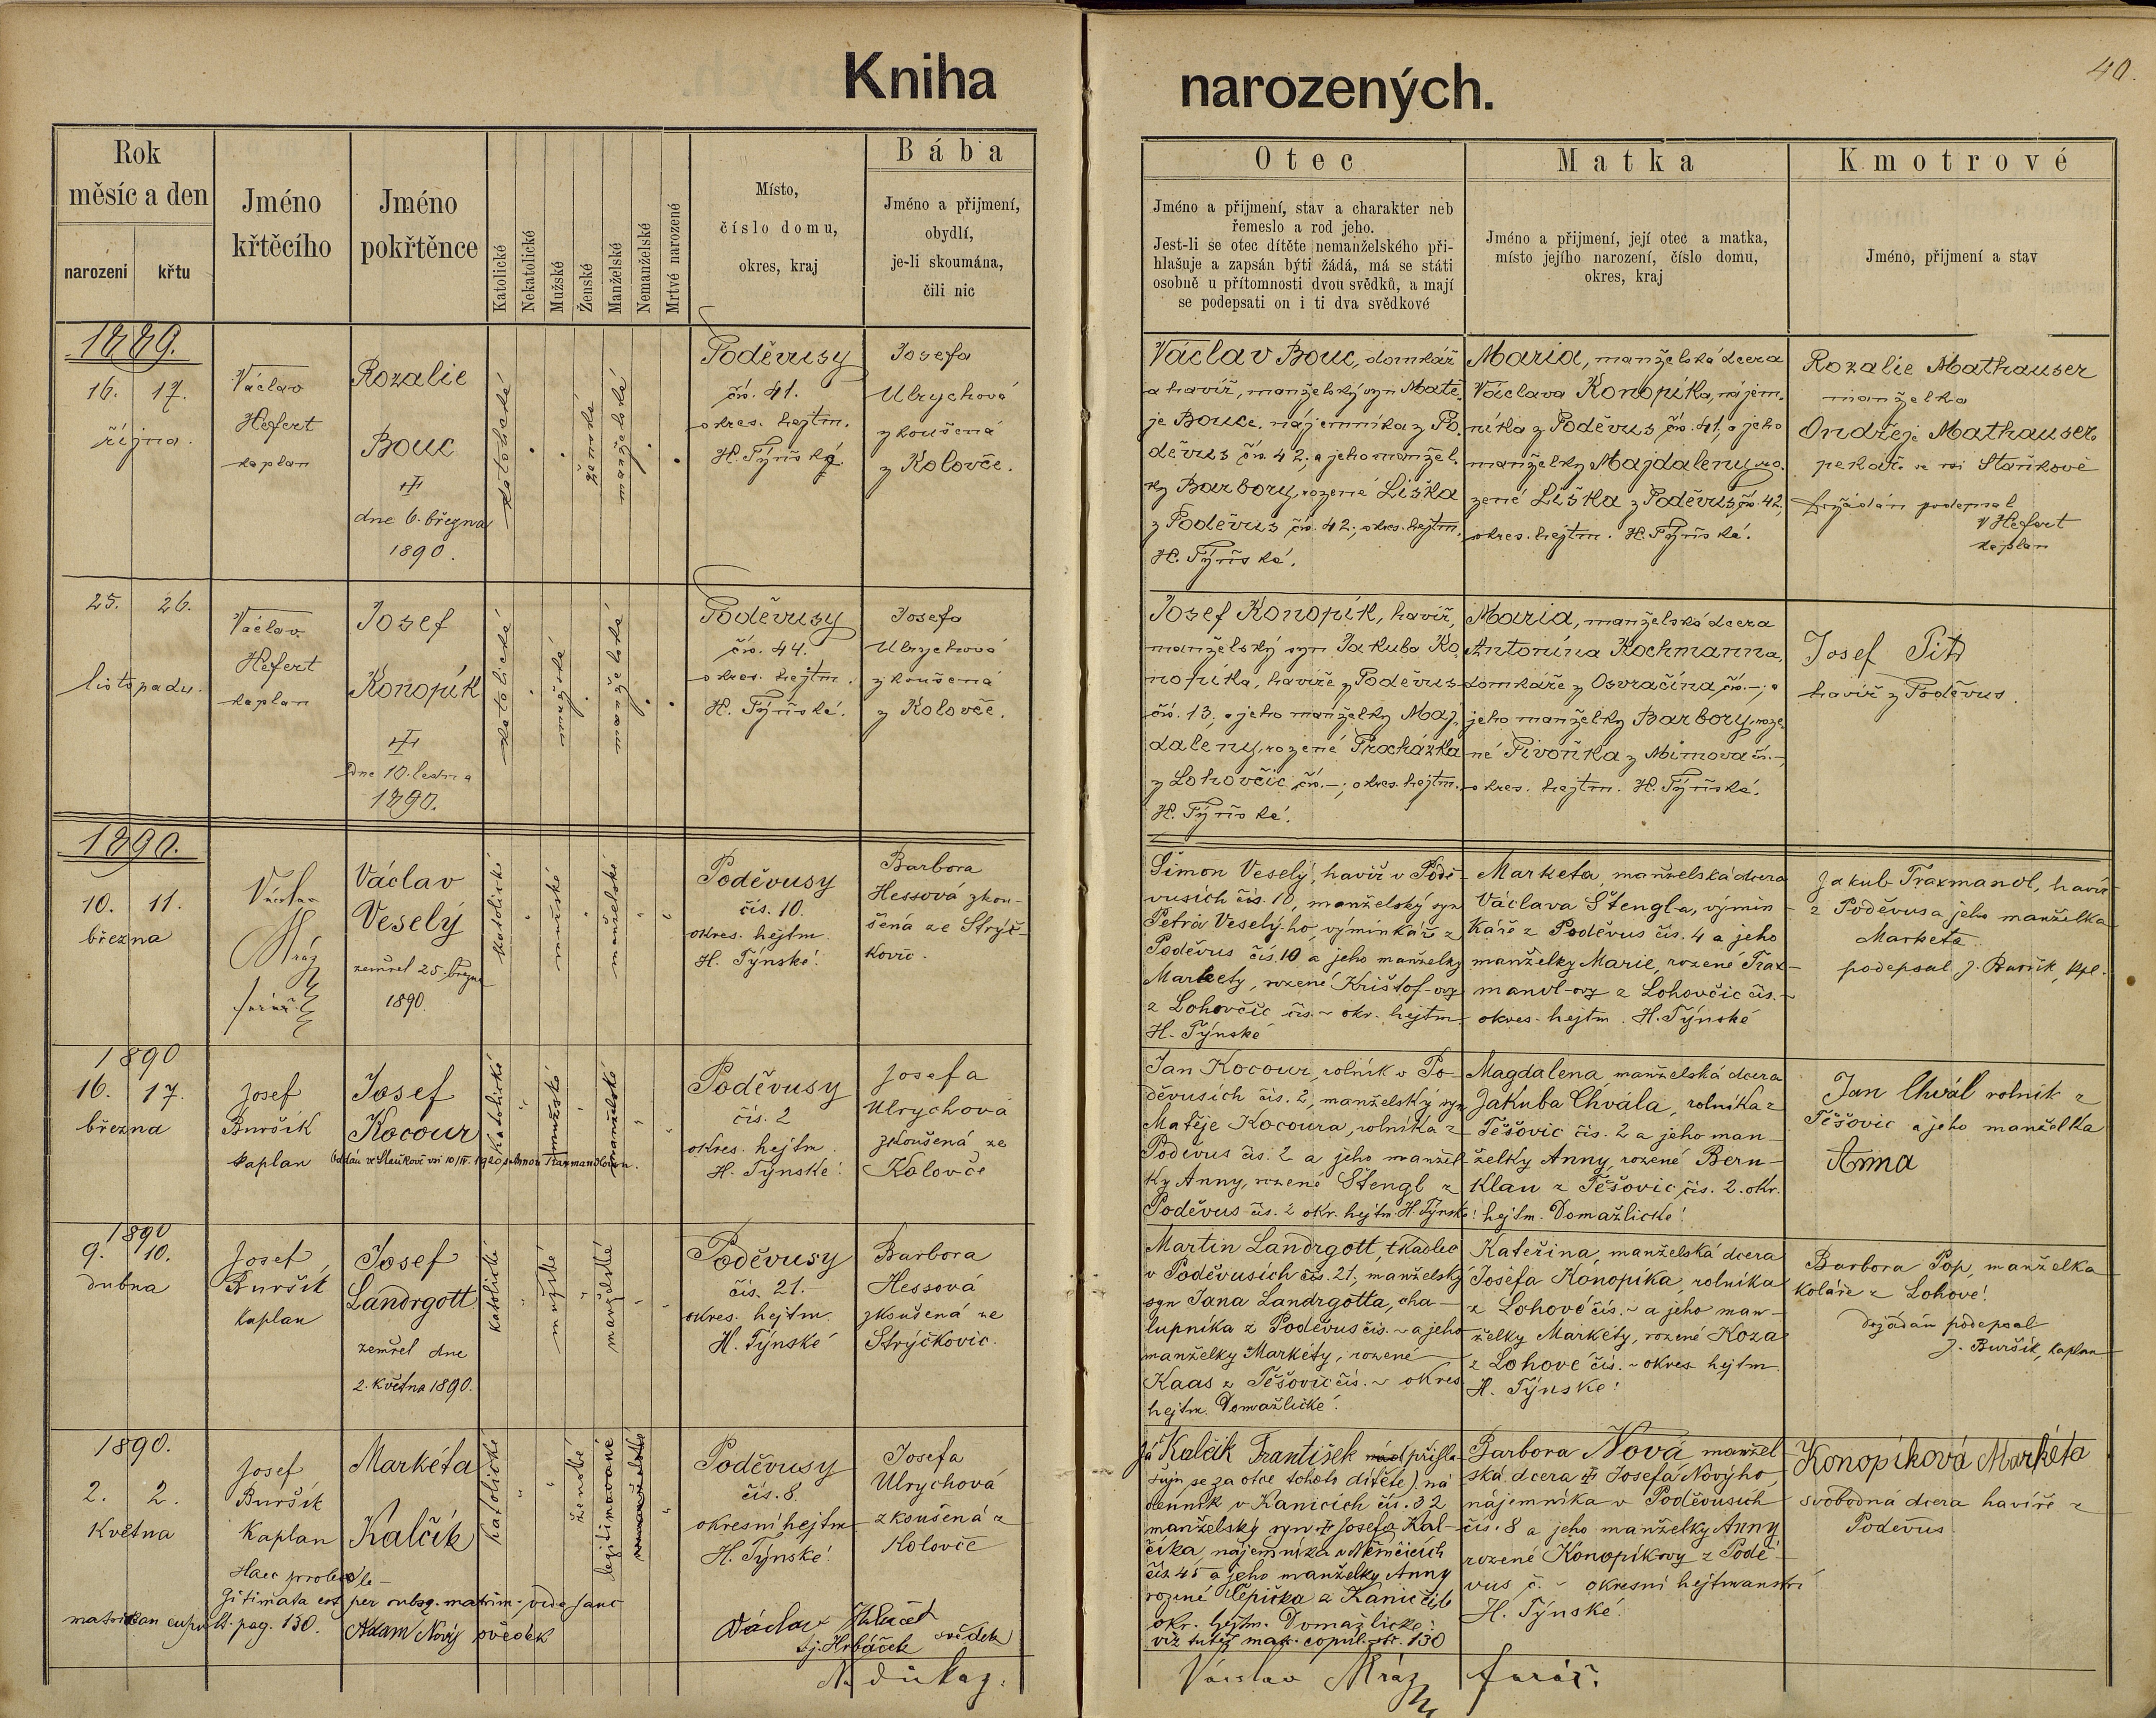 Kniha narozených.
40.
Rok
měsíc a den
narození
křtu
Jméno
křtěcího
Jméno
pokřtěnce
Katolické
Nekatolické
Mužské
Ženské
Manželské
Nemanželské
Mrtvé narozené
Místo,
číslo domu,
okres, kraj
Bába
Jméno a přijmení,
obydlí,
je-li skoumána,
čili nic
Otec
Jméno a přijmení, stav a charakter neb
řemeslo a rod jeho.
Jest-li se otec dítěte nemanželského při-
hlašuje a zapsán býti žádá, má se státi
osobně u přítomnosti dvou svědků, a mají
se podepsati on i ti dva svědkové
Matka
Jméno a přijmení, její otec a matka,
místo jejího narození, číslo domu,
okres, kraj
Kmotrové
Jméno, přijmení a stav
1889.
16. 17.
října.
Václav
Hefert
kaplan
Rozalie
Bouc
dne 6. března
1890.
katolické
ženské
manželské
Poděvusy
čís. 41.
okres. hejtm.
H. Týnské
Josefa
Ulrychová
zkoušená
z Kolovče.
Václav Bouc, domkář
a havíř, manželský syn Matě-
je Bouce, nájemníka z Po-
děvus čís. 42, a jeho manžel-
ky Barbory, rozené Liška
z Poděvus čís. 42; okres. hejtm.
H. Týnské.
Maria, manželská dcera
Václava Konopíka, nájem-
níka z Poděvus čís. 41, a jeho
manželky Majdaleny, ro-
zené Liška z Poděvus čís. 42,
okres. hejtm. H. Týnské.
Rozalie Mathauser
manželka
Ondřeje Mathausera
pekaře ve vsi Staňkově
dožádán podepsal
V Hefert
kaplan
25. 26.
listopadu.
Václav
Hefert
kaplan
Josef
Konopík
dne 10. ledna
1890.
katolické
mužské
manželské
Poděvusy
čís. 44.
okres. hejtm.
H. Týnské.
Josefa
Ulrychová
zkoušená
z Kolovče.
Josef Konopík, havíř,
manželský syn Jakuba Ko-
nopíka, havíře z Poděvus
čís. 13, a jeho manželky Maj-
daleny, rozené Procházka
z Lohovčic čís. –; okres. hejtm.
H. Týnské.
Maria, manželská dcera
Antonína Kochmanna,
domkáře z Osvračína čís. –, a
jeho manželky Barbory, roze-
né Pivoňka z Mimova čís. –,
okres. hejtm. H. Týnské.
Josef
havíř z Poděvus.
1890.
10. 11.
března
Václav
Mráz
farář
Václav
Veselý
zemřel 25. března
1890.
katolické
mužské
manželské
Poděvusy
čís. 10.
okres. hejtm.
H. Týnské.
Barbora
Hessová zkou-
šená ze Strýč-
kovic.
Šimon Veselý, havíř v Podě-
vusích čís. 10, manželský syn
Petra Veselý-ho, výminkáře z
Poděvus čís. 10 a jeho manželky
Markety, rozené Krištof-ovy
z Lohovčic čís. ~ okr. hejtm.
H. Týnské
Marketa, manželská dcera
Václava Štengl-a, výmin-
káře z Poděvus čís. 4 a jeho
manželky Marie, rozené Trax-
mandl-ovy z Lohovčic čís. ~
okres. hejtm. H. Týnské
Jakub Traxmandl, havíř
z Poděvus a jeho manželka
Marketa
podepsal J. Buršík, kpl.
1890
16. 17.
března
Josef
Buršík
kaplan
Josef
Kocour
katolické
mužské
manželské
Oddán ve Staňkově vsi 10/IV. 1920 s Annou Traxmandlovou.
Poděvusy
čís. 2
okres. hejtm.
H. Týnské.
Josefa
Ulrychová
zkoušená ze
Kolovče
Jan Kocour, rolník v Po-
děvusích čís. 2, manželský syn
Matěje Kocoura, rolníka z
Poděvus čís. 2 a jeho manžel-
ky Anny, rozené Štengl z
Poděvus čís. 2 okr. hejtm. H. Týnské.
Magdalena, manželská dcera
Jakuba Chvála, rolníka z
Těšovic čís. 2 a jeho man-
želky Anny, rozené Bern-
klau z Těšovic, čís. 2. okr.
hejtm. Domažlické.
Jan Chvál rolník z
Těšovic a jeho manželka
Anna
1890
9. 10.
dubna
Josef
Buršík
kaplan
Josef
Landrgott
zemřel dne
2. května 1890.
katolické
mužské
manželské
Poděvusy
čís. 21.
okres. hejtm.
H. Týnské
Barbora
Hessová
zkoušená ze
Strýčkovic.
Martin Landrgott, tkadlec
v Poděvusích čís. 21, manželský
syn Jana Landrgotta, cha-
lupníka z Poděvus čís. ~ a jeho
manželky Markéty, rozené
Kaas z Těšovic čís. ~ okres
hejtm. Domažlické.
Kateřina, manželská dcera
Josefa Konopíka, rolníka
z Lohové čís. ~ a jeho man-
želky Markéty, rozené Koza
z Lohové čís. ~ okres hejtm.
H. Týnské.
Barbora Pop, manželka
koláře z Lohové.
dožádán podepsal
J. Buršík, kaplan
1890.
2. 2.
května
Josef
Buršík
kaplan
Markéta
Kalčík
katolické
ženské
legitimované
Haec proles le-
gitimata est per subsq. matrim. vide hanc
matrikam copul. pag. 130.
Adam Nový svědek
Poděvusy
čís. 8.
okresní hejtm
H. Týnské.
Josefa
Ulrychová
zkoušená z
Kolovče
Václav
sj. Hrbáček svědek
Na důkaz:
Já Kalčík František přihla-
šuji se za otce tohoto dítěte), ná-
denník v Kanicích čís. 32
manželský syn Josefa Kal-
číka, nájemníka v Němčicích
čís. 45 a jeho manželky Anny
rozené Řepička z Kanic čís.
okr. hejtm. Domažlické.
viz tutéž mat. copul. str. 130
Barbora Nová manžel-
ská dcera Josefa Novýho,
nájemníka v Poděvusích
čís. 8 a jeho manželky Anny
rozené Konopíkovy z Podě-
vus č. ~ okresní hejtmanství
H. Týnské.
Konopíková Markéta
svobodná dcera havíře z
Poděvus.
Václav Mráz farář.